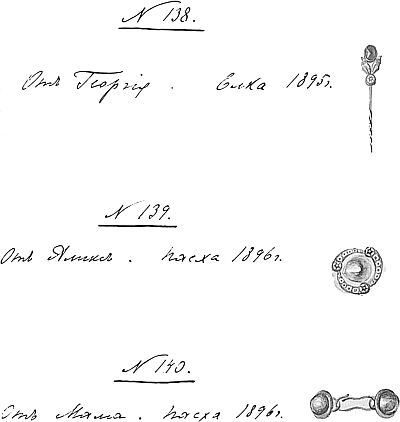 N 138.
Отъ Георгія. Елка 1895 г.
N 139.
Отъ Аликсъ. Пасха 1896 г.
N 140.
Отъ Мама. Пасха 1896 г.